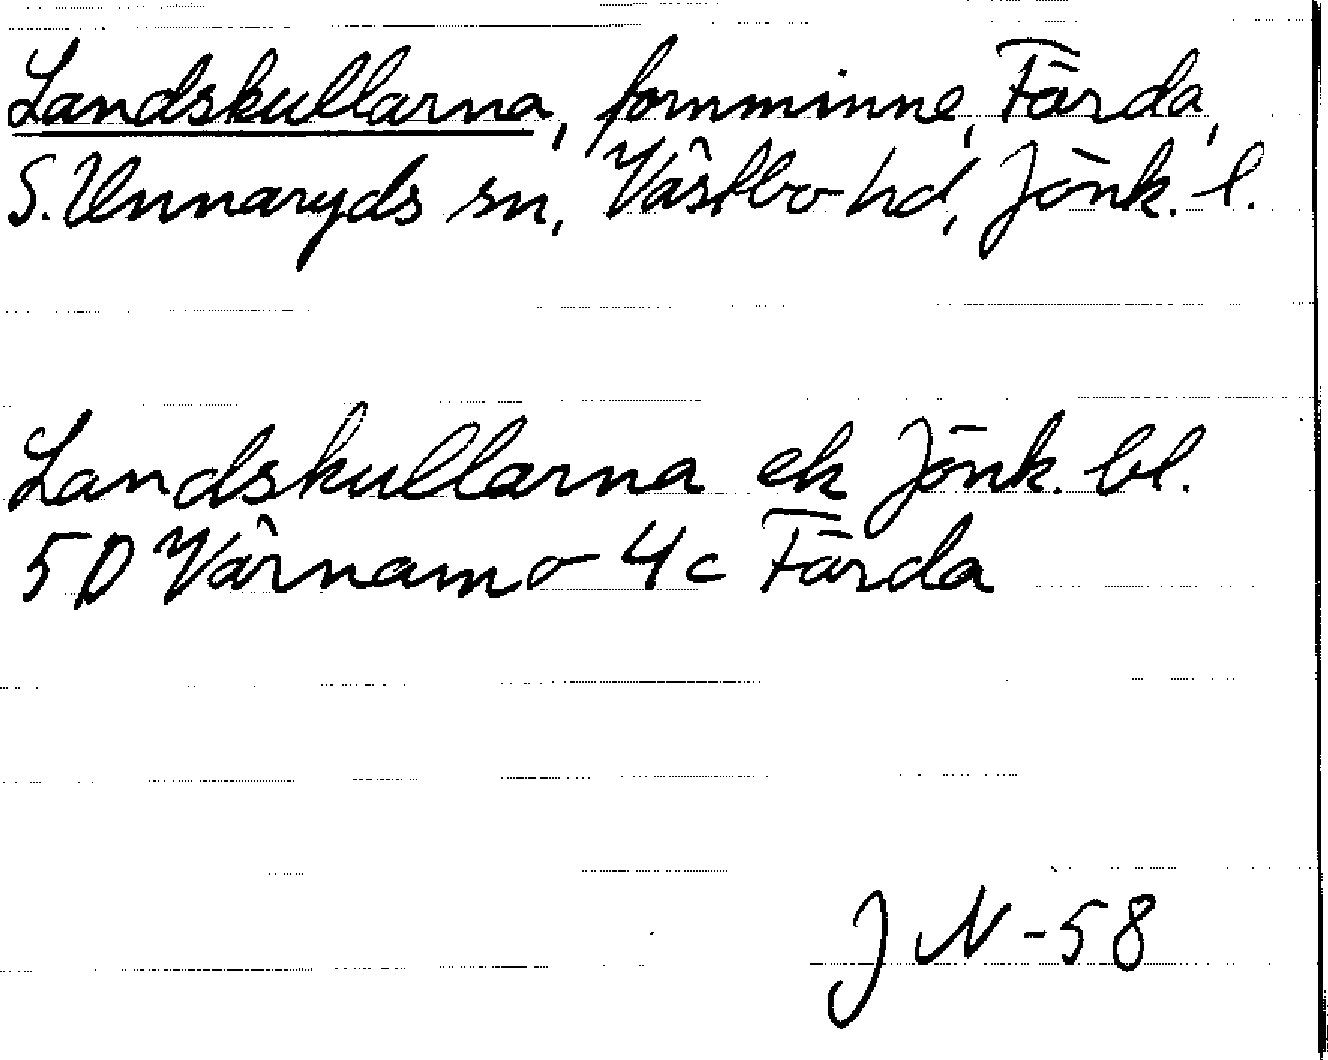 Landskullarna, fornminne, Färda,
S. Unnaryds sn, Västbo hd, Jönk. l.
Landskullarna ek Jönk. bl.
5D Värnamo 4c Färda
J N -58